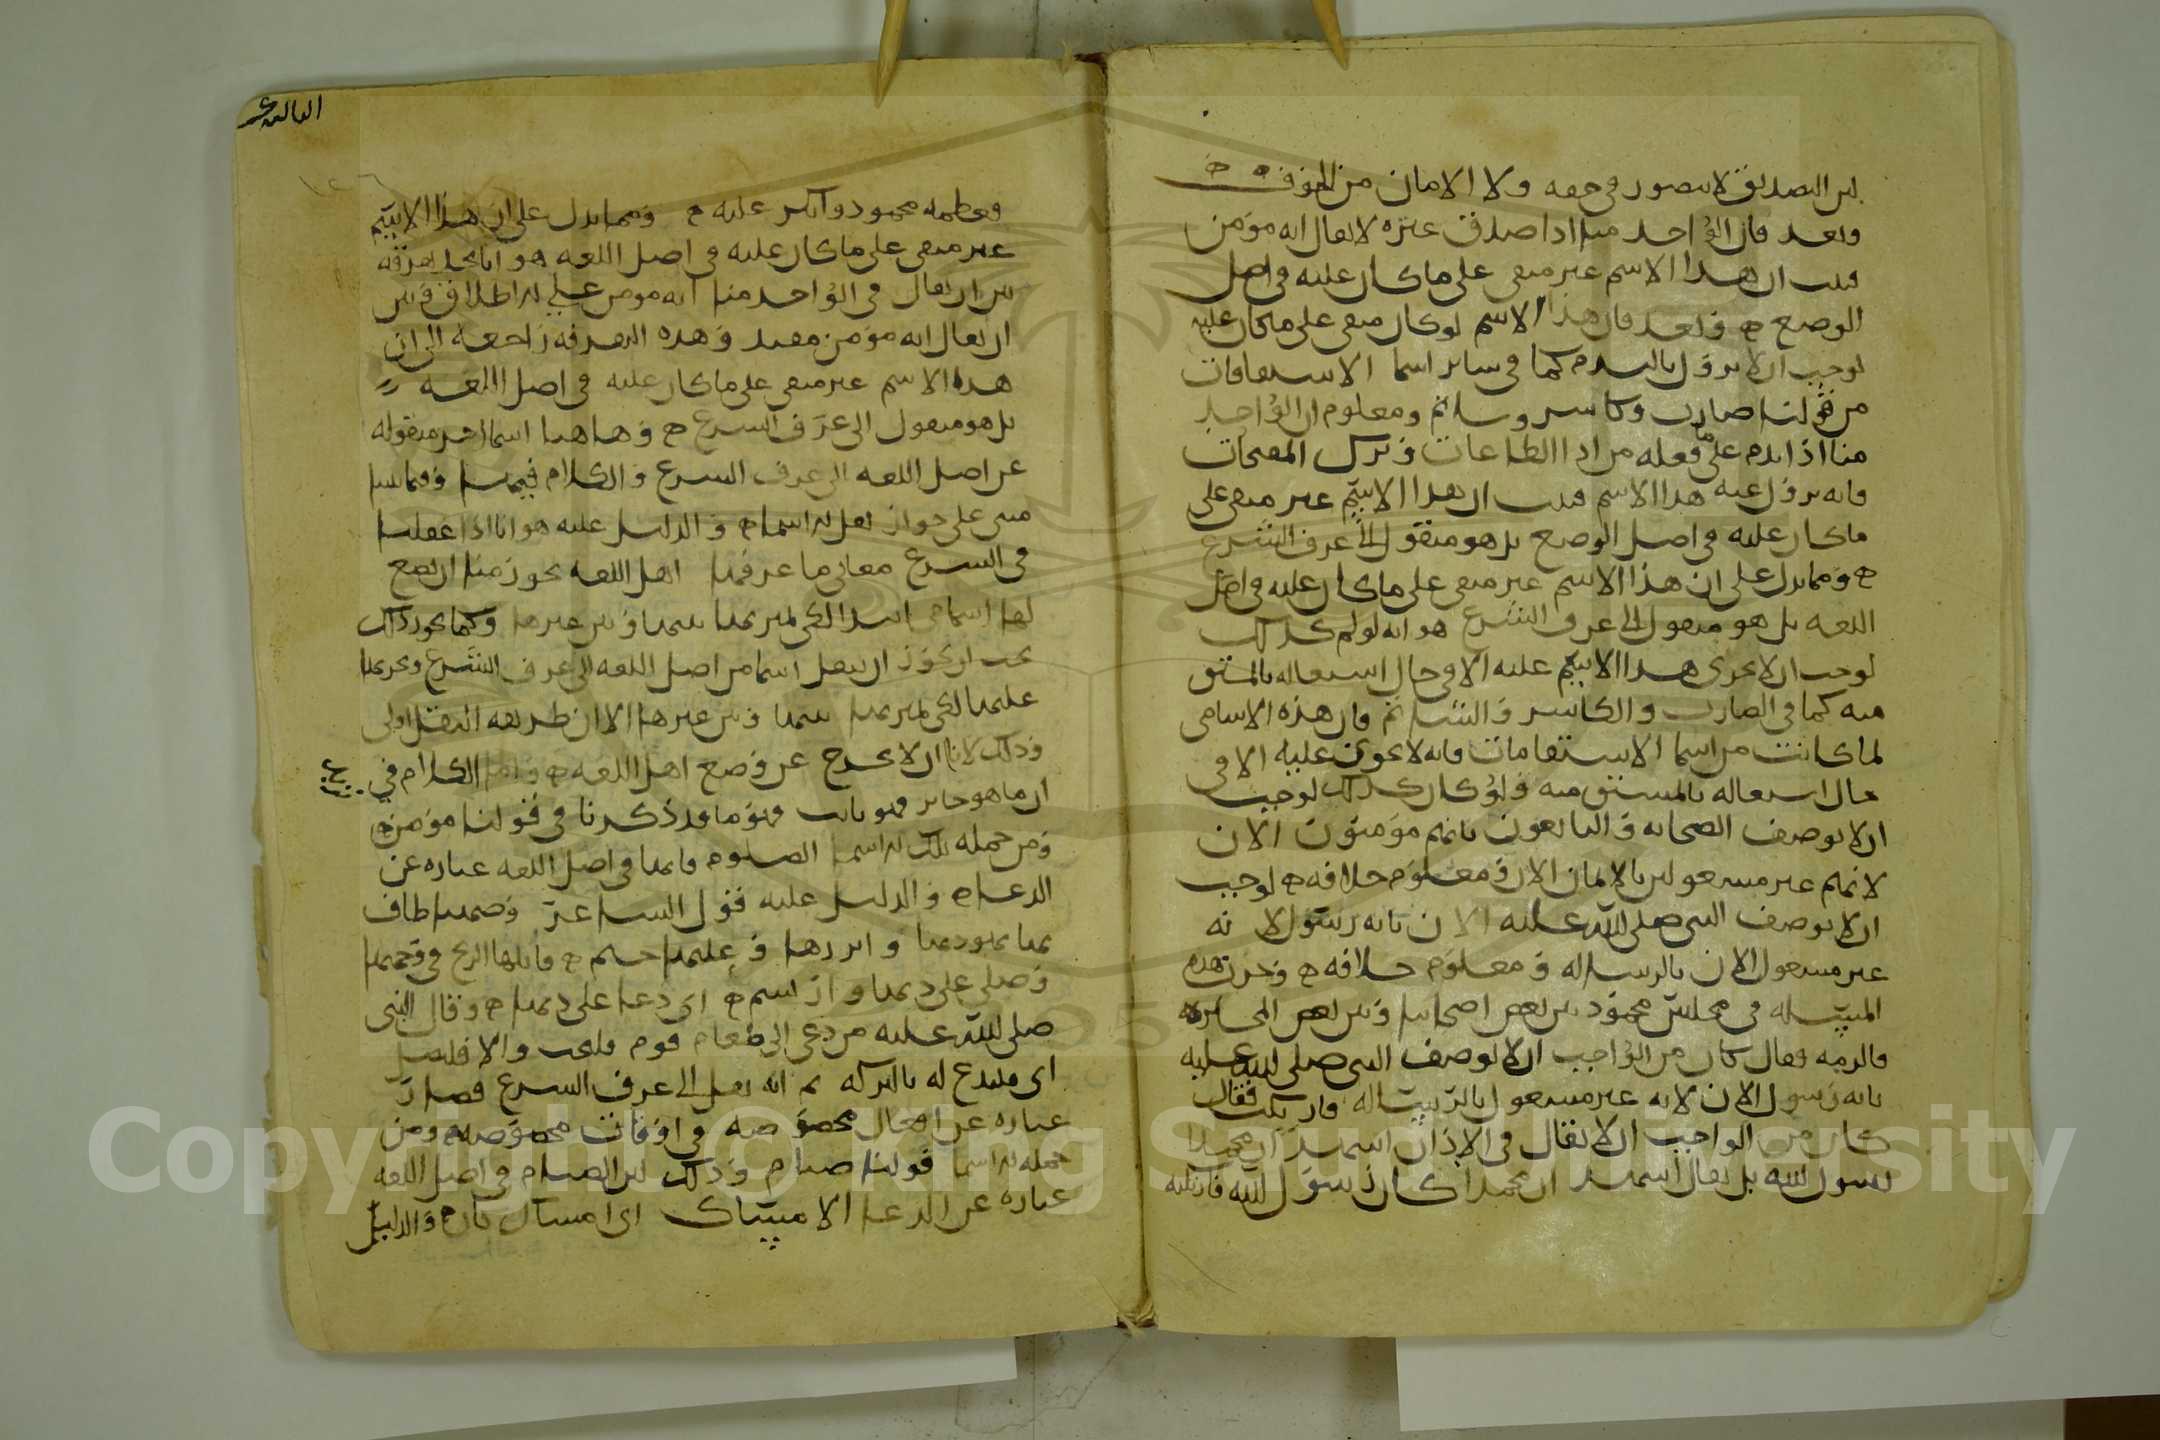 لان التصديق لا يتصور في حقه ولا الامان من الخوف ه ه
وبعد فان الواحد منا اذا صدق غيره لا يقال انه مؤمن
فبان ان هذا الاسم غير مبقى على ما كان عليه في اصل
الوضع ه وبعد فان هذا الاسم لو كان مبقى على ما كان عليه
لوجب ان لا يزول بالندم كما في ساير اسما الاشتقاقات
من قولنا ضارب وكاسر وشاتم ومعلوم ان الواحد
منا اذا ندم على ما فعله من ادا الطاعات وترك المقبحات
فانه يزول عنه هذا الاسم فبان ان هذا الاسم غير مبقى على
ما كان عليه في اصل الوضع بل هو منقول الى عرف الشرع
ه ومما يدل على ان هذا الاسم غير مبقى على ما كان عليه في اصل
اللغه بل هو منقول الى عرف الشرع هو انه لو لم يكن كذلك
لوجب ان لا يجرى هذا الاسم عليه الا في حال اشتغاله بالمشتق
منه كما في الضارب والكاسر والشاتم فان هذه الاسامى
لما كانت من اسما الاشتقاقات فانه لا يجرى عليه الا في
حال اشتغاله بالمشتق منه ولو كان كذلك لوجب
ان لا يوصف الصحابه والتابعون بانهم مؤمنون الان
لانهم غير مشغولين بالايمان الان ومعلوم خلافه ه لوجب
ان لا يوصف النبى صلى الله عليه الان بانه رسول لانه
غير مشغول الان بالرساله ومعلوم خلافه ه وجرت هذه
المسئله في مجلس محمود بين بعض اصحابنا وبين بعض المجبره
فالزمه فقال كان من الواجب ان لا يوصف النبى صلى الله عليه
بانه رسول الان لانه غير مشغول بالرساله فارتكب فقال
كان من الواجب ان لا يقال في الاذان اشهد ان محمدا
رسول الله بل يقال اشهد ان محمدا كان رسول الله فانكليه
وعظمه محمود وانكر عليه ه ومما يدل على ان هذا الاسم
غير مبقى على ما كان عليه في اصل اللغه هو انا نجد تفرقه
بين ان يقال في الواحد منا انه مومن على الاطلاق وبين
ان يقال انه مؤمن مقيد وهذه التفرقه راجعه الى ان
هذا الاسم غير مبقى على ما كان عليه في اصل اللغه
بل هو منقول الى عرف الشرع ه وهاهنا اسما اخر منقوله
عن اصل اللغه الى عرف الشرع والكلام فيها
مبنى على جواز نقل الاسما ه والدليل عليه هو انا اذا عقلنا
في الشرع معانى ما عرفها اهل اللغه يجوز منا ان نضع
لها اسما من ابتدا لكى نميز بها بينها وبين غيرها وكما يجوز ذلك
يجب ان يجوز ان ينقل اسما من اصل اللغه الى عرف الشرع ونجريها
عليها لكى نميز بها بينها وبين غيرها الا ان طريقه النقل اولى
وذلك لانا ان لا نخرج عن وضع اهل اللغه ه واما الكلام في
ان ما هو جايز فهو ثابت فهو ما قد ذكرنا في قولنا مؤمن ه
ومن جمله تلك الاسما الصلوه فانها في اصل اللغه عباره عن
الدعا ه والدليل عليه قول الشاعر وصهبا طاف
بها يهوديها وابرزها وعليها ختم ه وقابلها الريح في دنها
وصلى على دنها وارتسم ه اى دعا على دنها ه وقال النبى
صلى الله عليه من دعى الى طعام قوم فليجب والا فليصل
اى فليدع له بالبركه ثم انه نقل الى عرف الشرع فصار
عباره عن افعال مخصوصه في اوقات مخصوصه ومن
جمله الاسما قولنا صيام وذلك لان الصيام في اصل اللغه
عباره عن الامساك اى امساك كان ه والدليل
Copyright © King Saud University